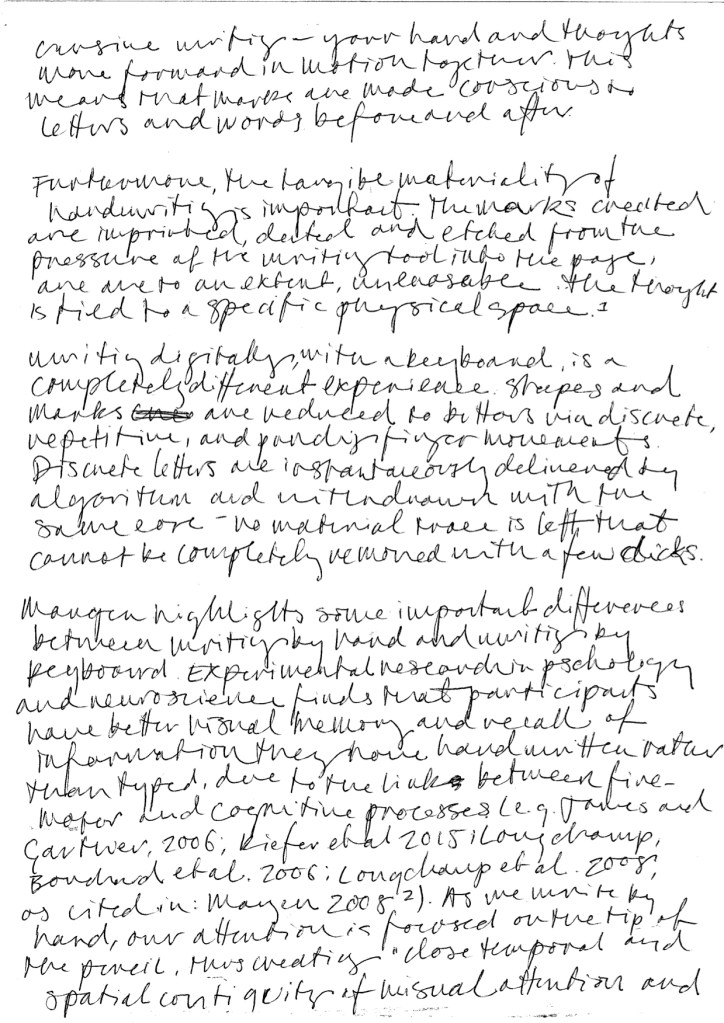 cursive writing – your hand and thoughts
move forward in motion together. This
means that marks are made conscious to
letters and words before and after.
Furthermore, the tangible materiality of
handwriting is important. The marks created
are imprinted, dented and etched from the
pressure of the writing tool into the page,
are to an extent, unerasable. The thought
is tied to a specific physical space.¹
Writing digitally, with a keyboard, is a
completely different experience. Shapes and
marks are reduced to buttons via discrete,
repetitive, and finger movements.
Discrete letters are instantaneously delivered by
algorithm and withdrawn with the
same ease – no material trace is left that
cannot be completely removed with a few clicks.
Mangen highlights some important differences
between writing by hand and writing by
keyboard. Experimental research in pschology
and neuroscience finds that participants
have better visual memory and recall of
information they have handwritten rather
than typed, due to the links between fine-
motor and cognitive processes (e.g. James and
Gautier, 2006; Kiefer et al 2015; Longchamp,
Boudard et al. 2006; Longchamp et al. 2008;
as cited in: Mangen 2008 ²). As we write by
hand, our attention is focused on the tip of
the pencil, thus creating "close temporal and
spatial contiguity of visual attention and